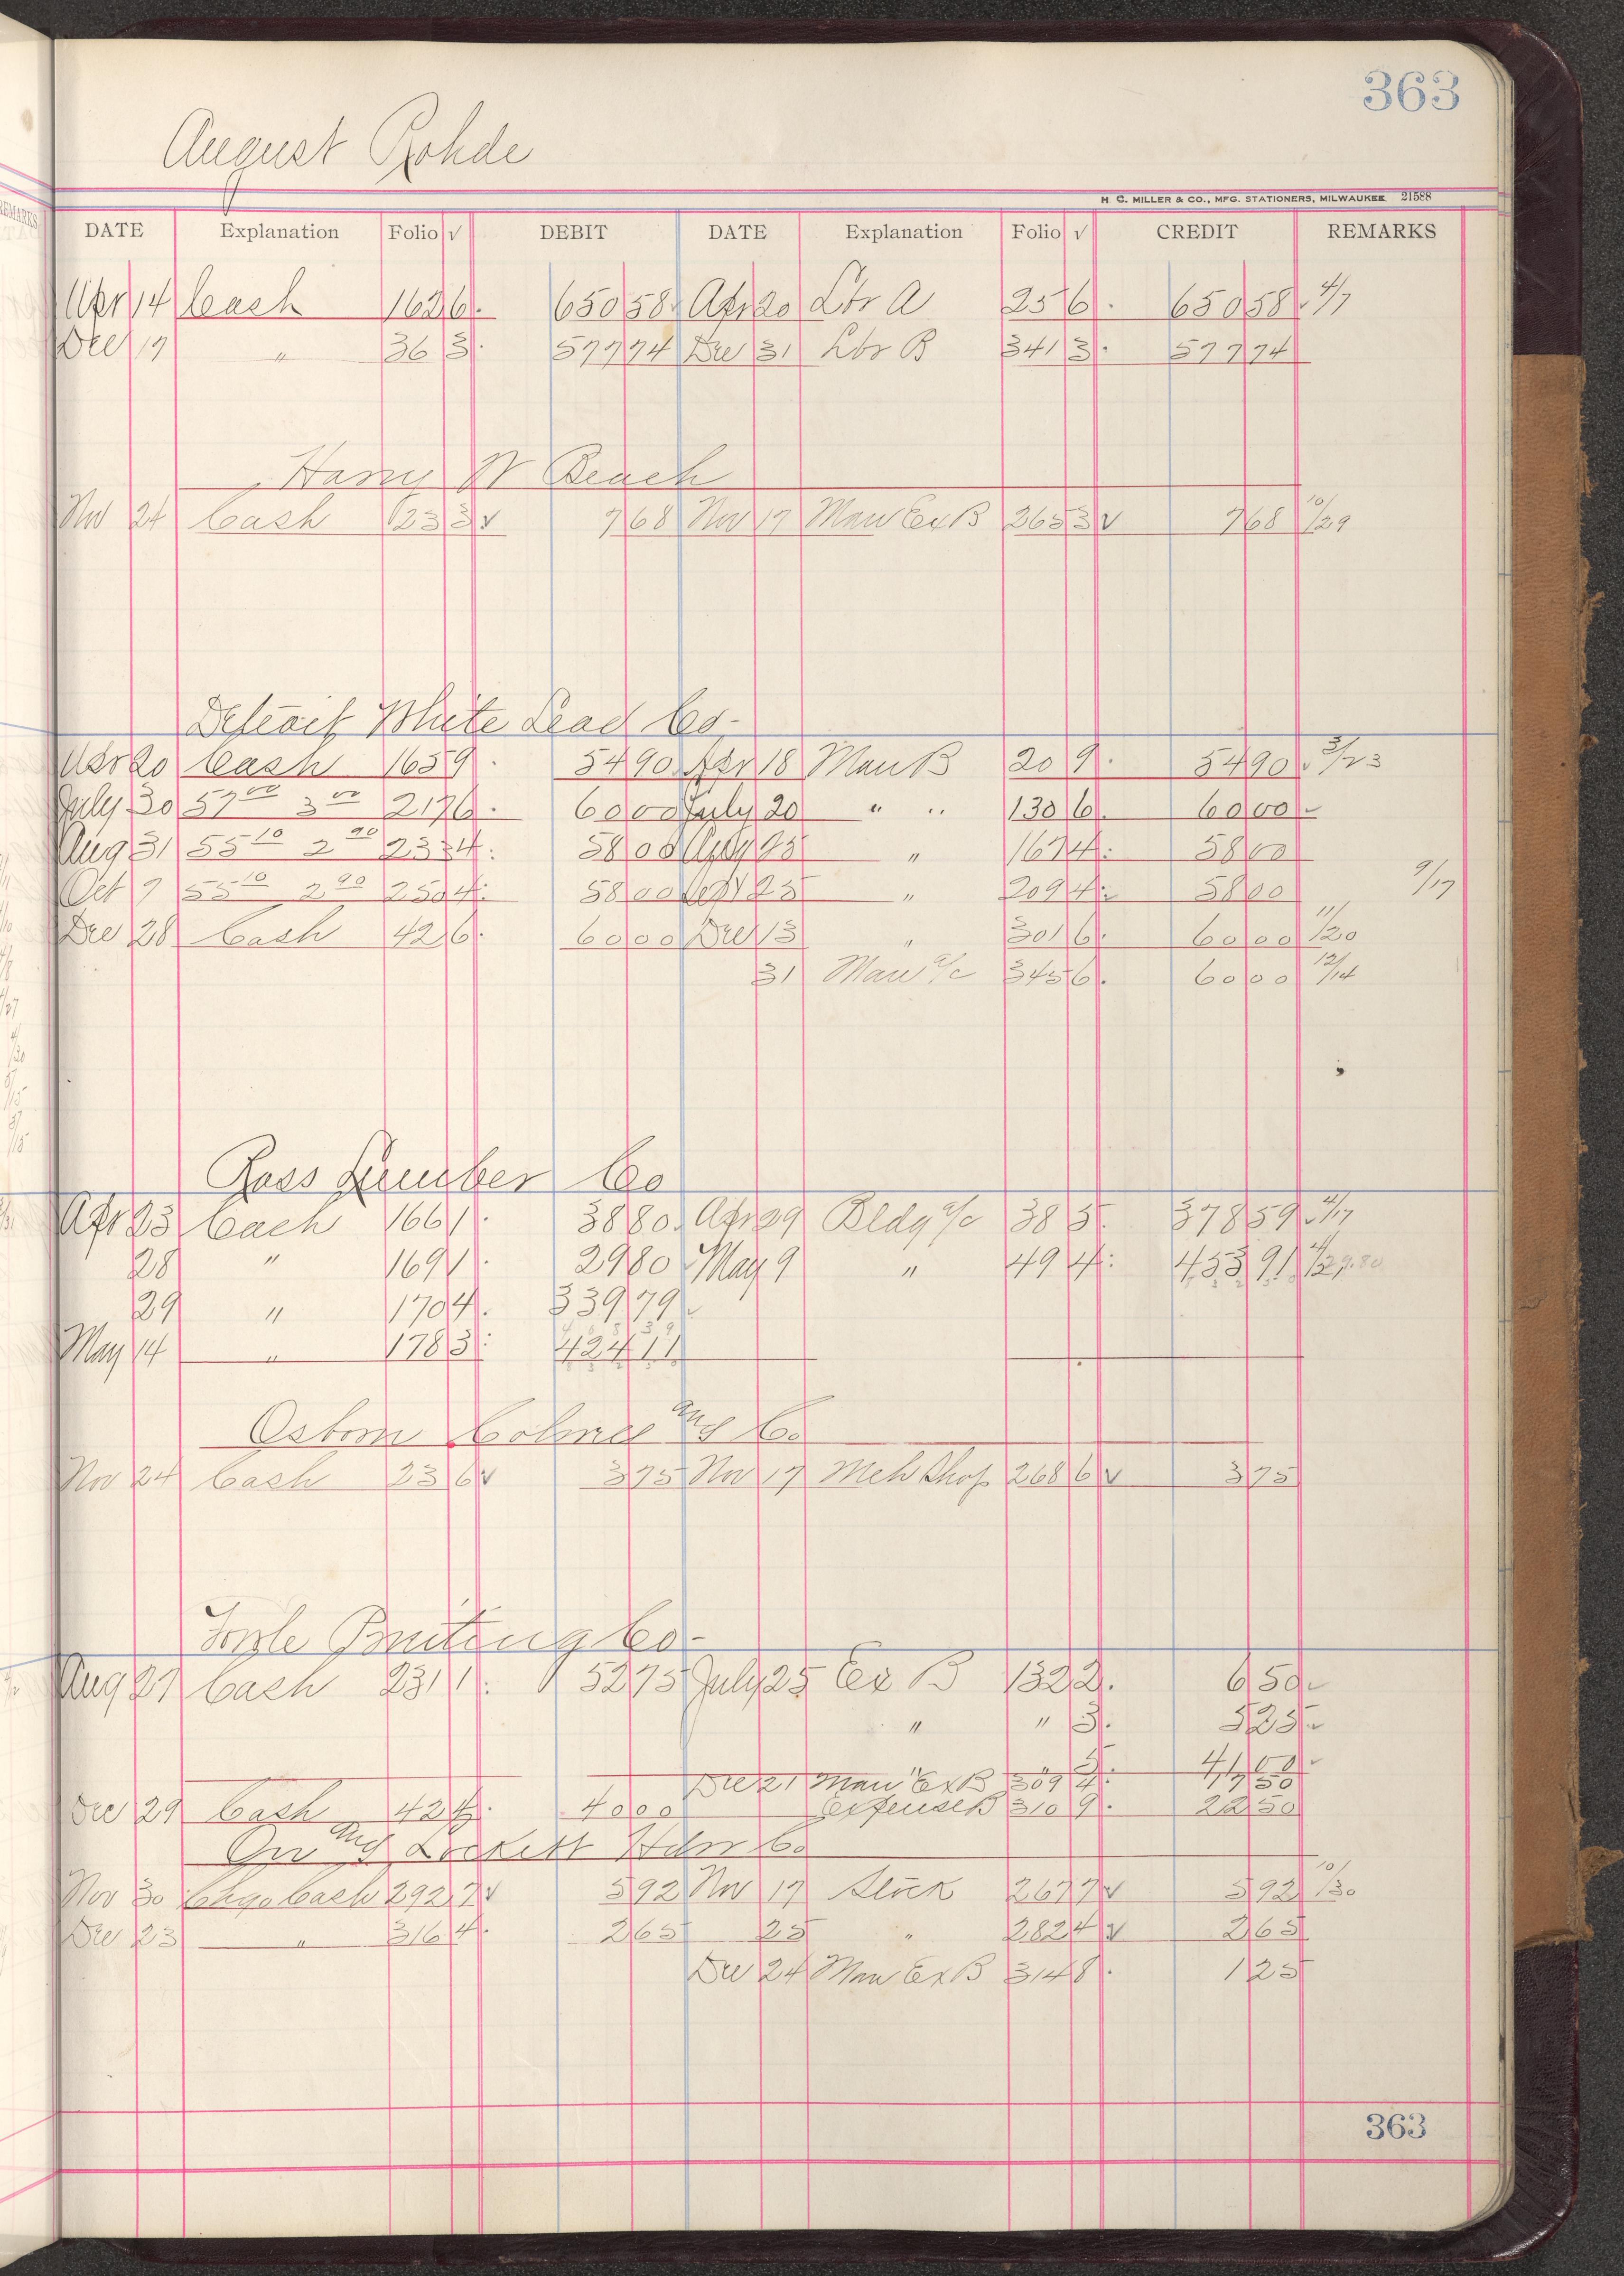 363
August Rohde
H. C. MILLER & CO., MFG. STATIONERS, MILWAUKEE 21588
DATE Explanation Folio √ DEBIT DATE Explanation Folio √ CREDIT REMARKS
Apr 14 Cash 162 6. 650 58. Apr 20 Lbr A 25 6. 650 58. 4/7
Dec 17 " 36 3. 577 74 Dec 31 Lbr B 341 3. 577 74
Harry W Beach
Nov 24 Cash 23 3 v 7 68 Nov 17 Man Ex B 265 3 v 7 68 10/29
Detroit White Lead Co-
Apr 20 Cash 165 9. 54 90. Apr 18 Man B 20 9. 54 90. 3/23
July 30 57 00 3 00 217 6. 60 00 July 20 " " 130 6. 60 00
Aug 31 55 10 2 90 233 4. 58 00 Aug 25 " 167 4. 58 00
Oct 7 55 10 2 90 250 4. 58 00 Sept 25 " 209 4. 58 00 9/17
Dec 28 Cash 42 6. 60 00 Dec 13 " 301 6. 60 00 11/20
31 Man a/c 345 6. 60 00 12/14
Ross Lumber Co
Apr 23 Cash 166 1. 38 80. Apr 29 Bldg a/c 38 5. 378 59. 4/17
28 " 169 1. 29 80 May 9 " 49 4. 453 91 4/29
29 " 170 4. 339 79
May 14 " 178 3. 424 11
Osborn and Co
Nov 24 Cash 23 6 v 3 75 Nov 17 Meh Shop 268 6 v 3 75
Printing Co-
Aug 27 Cash 231 1. 52 75 July 25 Ex B 132 2. 6 50
" " 3. 5 25
" " 5. 41 00
Dec 21 Man Ex B 309 4. 17 50
Dec 29 Cash 42 4. 40 00 Expense B 310 9. 22 50
Orr and Lockett Hdw Co
Nov 30 Chgo Cash 292 7 v 5 92 Nov 17 Stock 267 7 v 5 92 10/30
Dec 23 " 316 4. 2 65 25 " 282 4 v 2 65
Dec 24 Man Ex B 314 8. 1 25
363